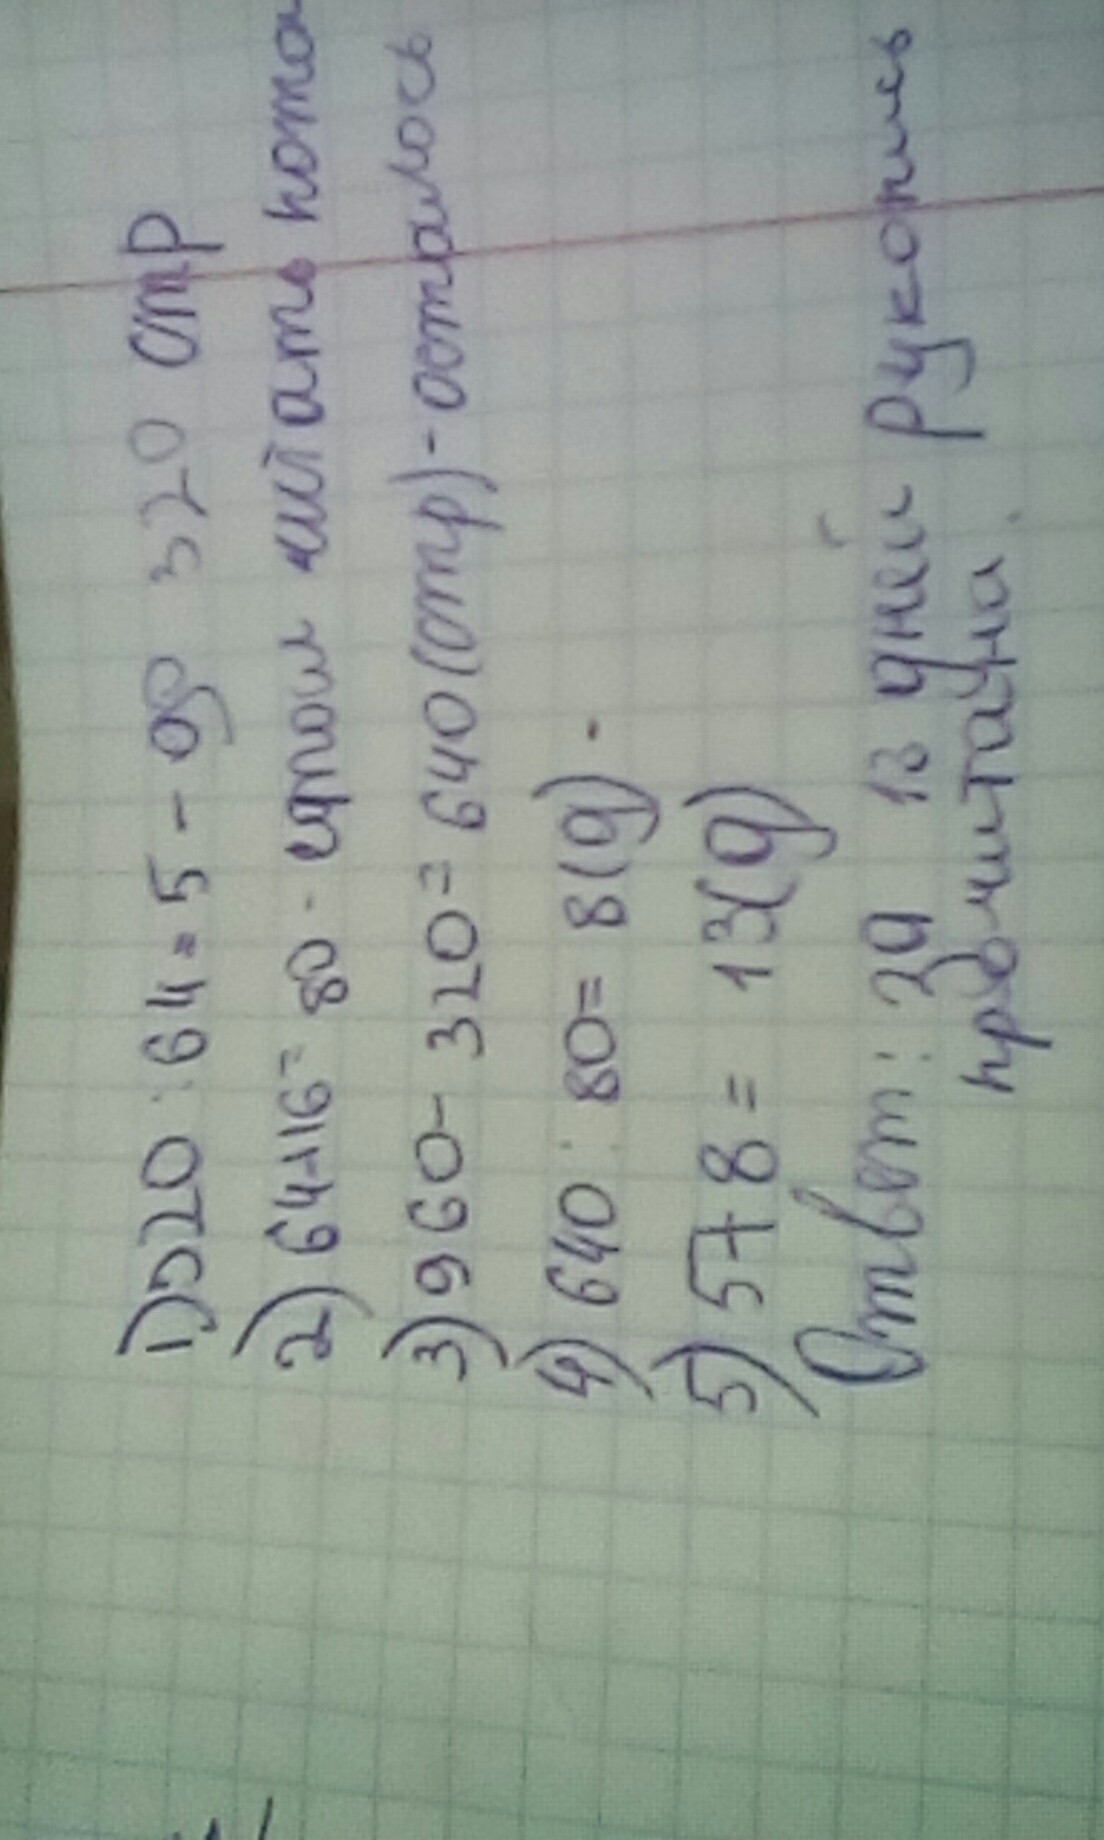 1) 320 : 64 = 5 - др 320 стр
2) 64+16= 80 - читать пото
3) 960 - 320 = 640 (стр) - осталось
4) 640 : 80 = 8 (д) -
5) 5+8 = 13(д)
Ответ: за 13 дней рукопись
прочитана.